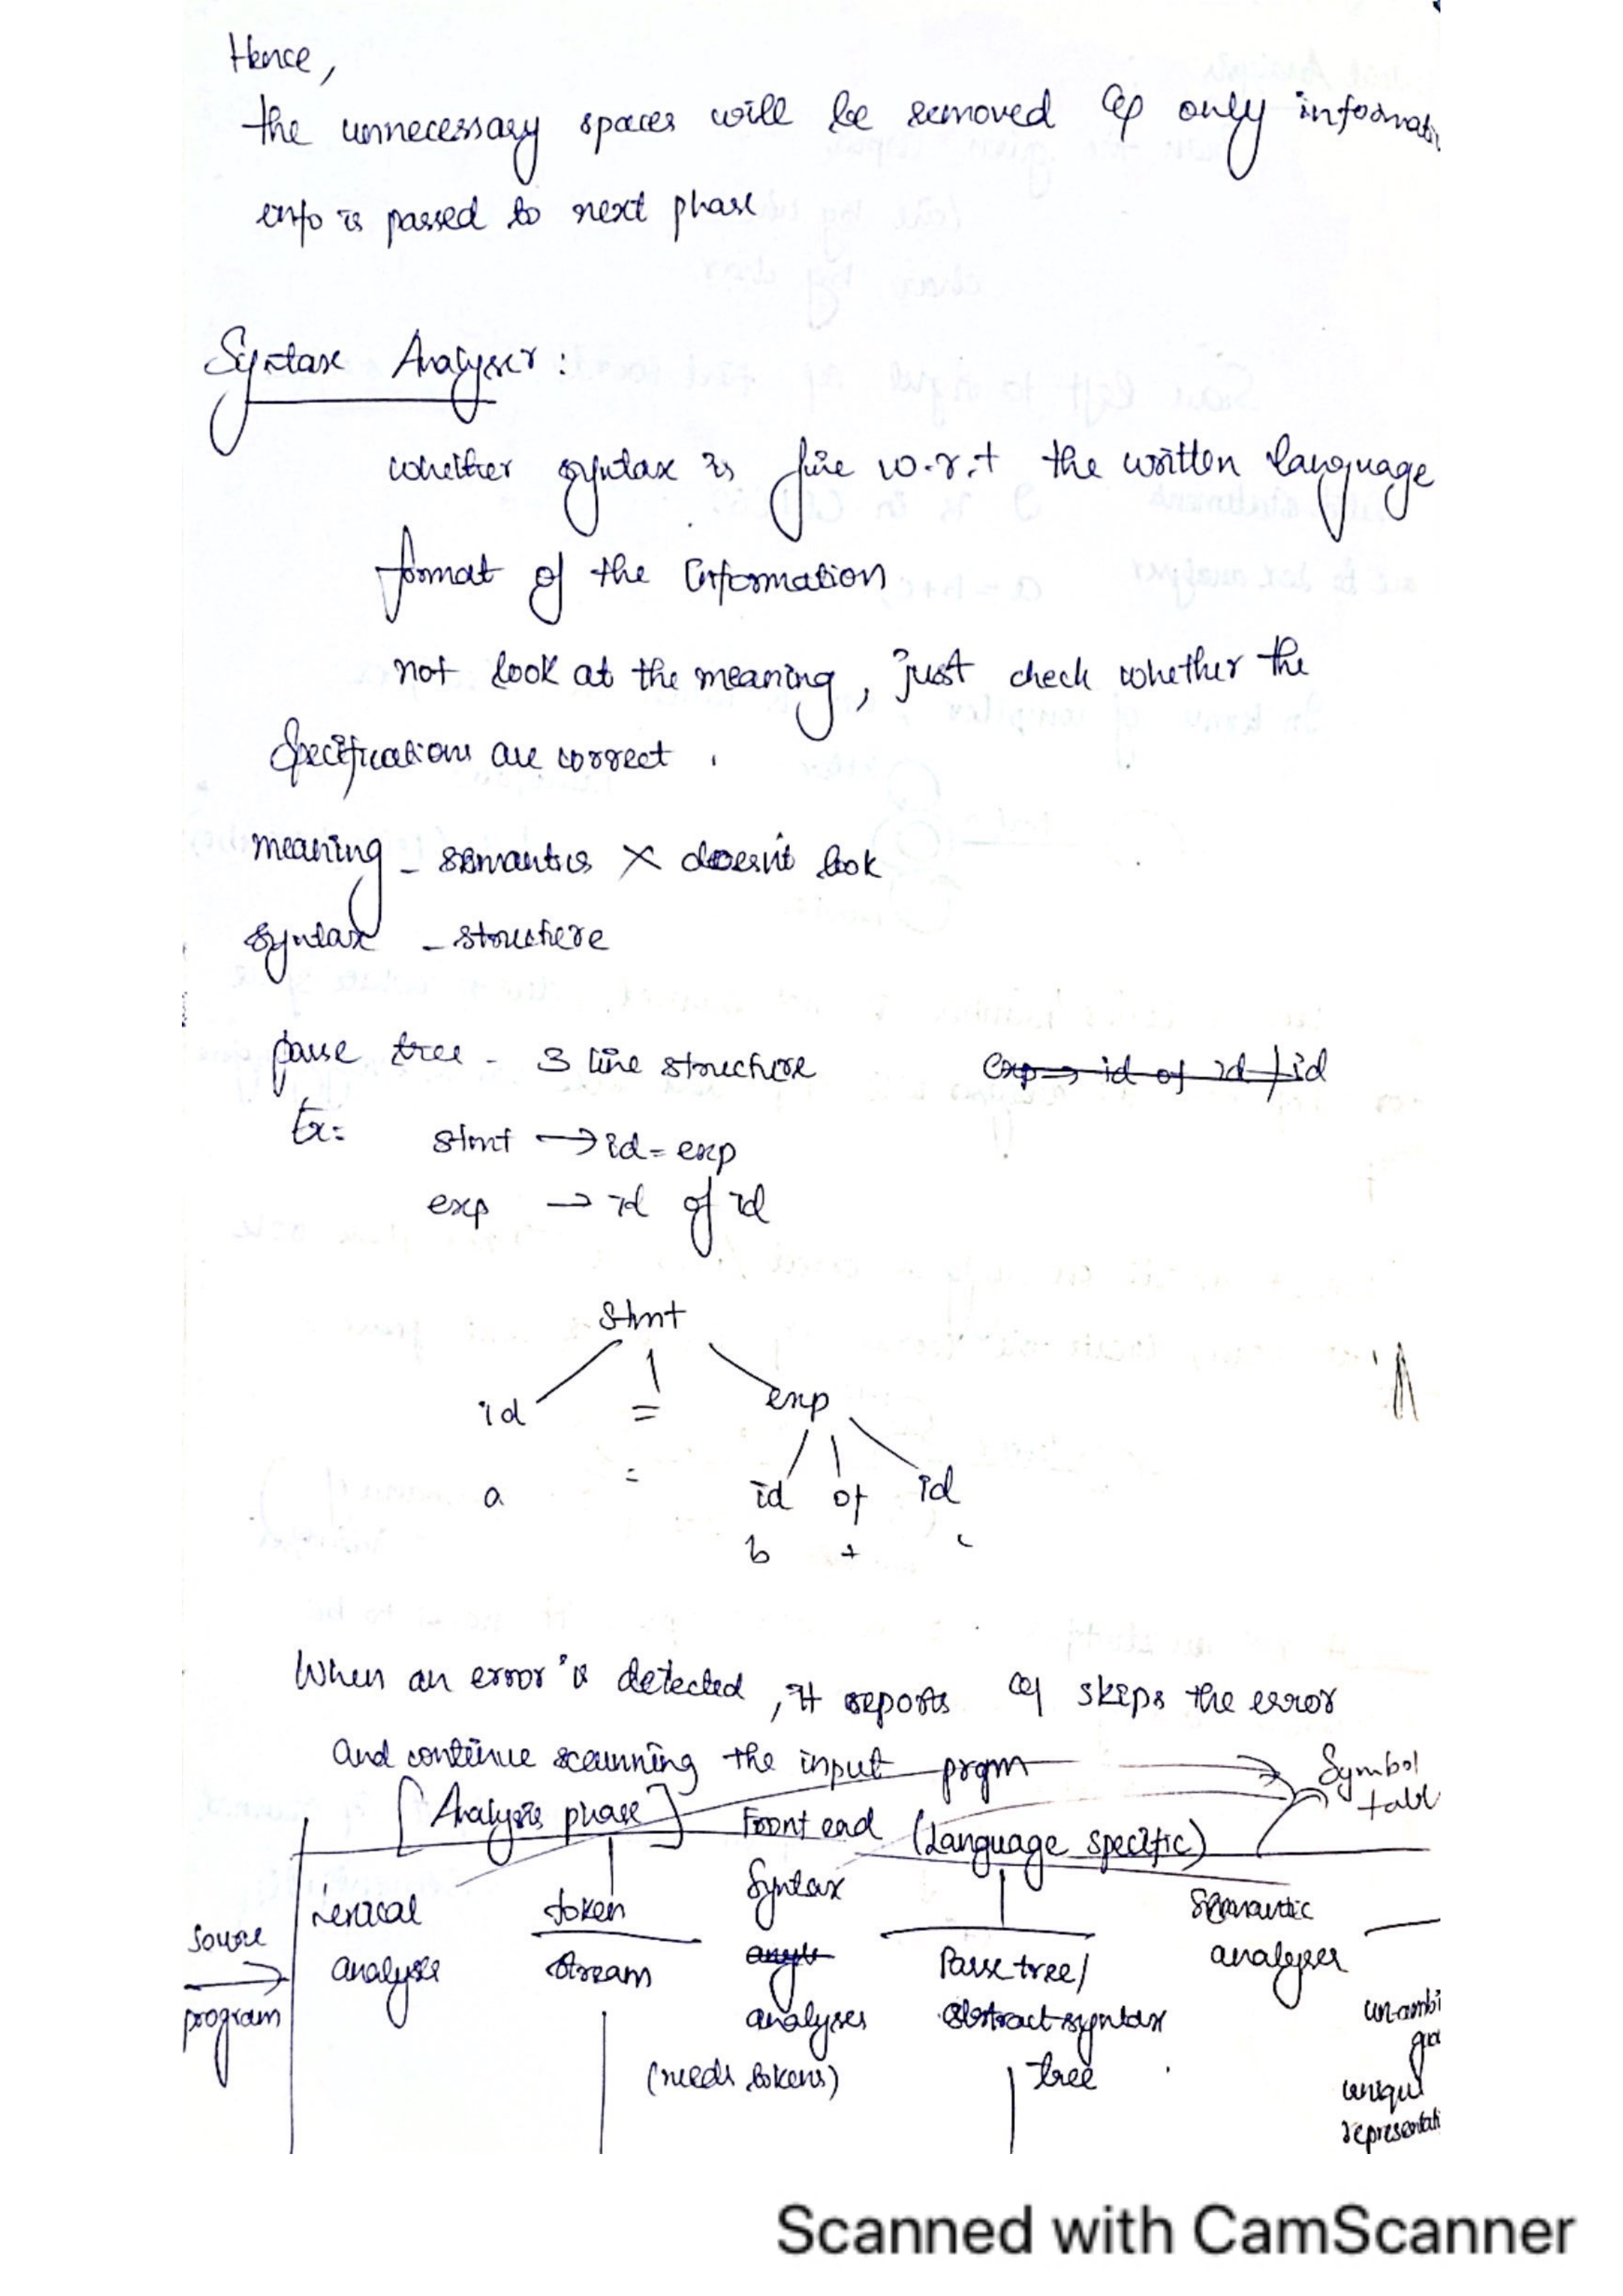 Hence,
the unnecessary spaces will be removed & only informati
info is passed to next phase
Syntax Analyser :
whether syntax is fine w.r.t the written language
format of the information
not look at the meaning, just check whether the
specifications are correct.
meaning - semantics X doesn't look
syntax - structure
parse tree - 3 line structure
exp → id of id / id
Ex:
stmt → id = exp
exp → id of id
Stmt
id = exp
a = id of id
b + c
When an error is detected, it reports & skips the error
and continue scanning the input prgm
Symbol
tabl
[Analysis phase] Front end (Language specific)
Lexical token Syntax Semantic
source
analyse stream Parse tree/ analyser
program analyses abstract syntax un-ambi
(needs tokens) tree
uniqu
representati